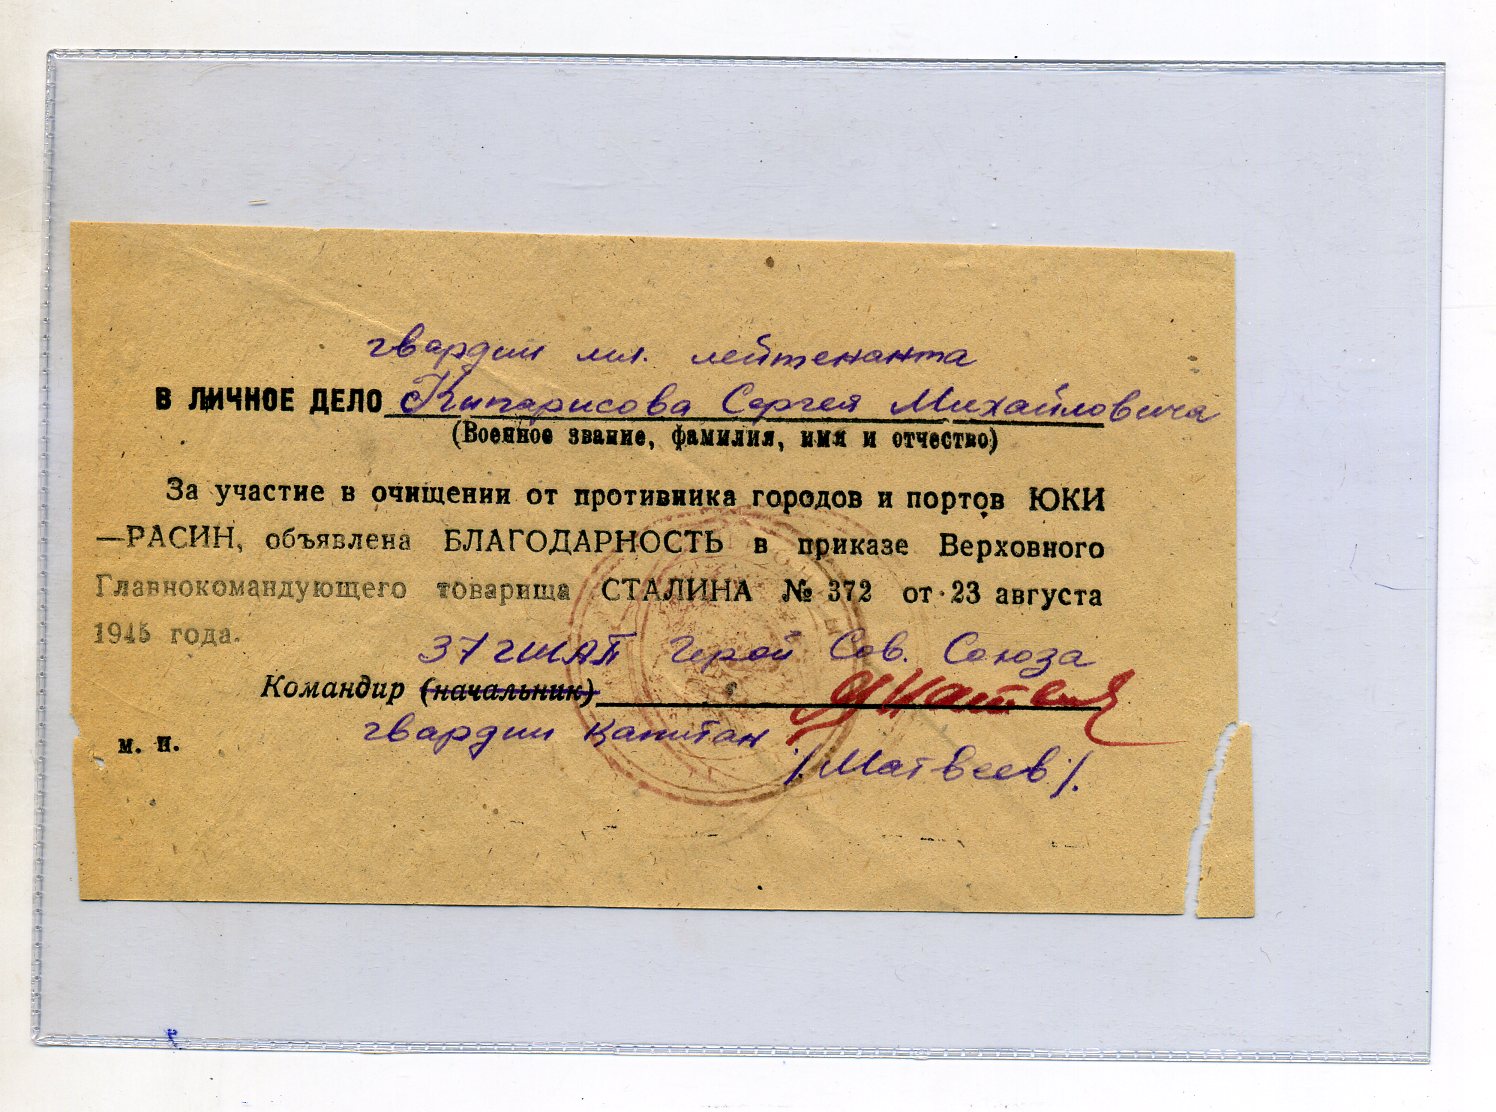 гвардии мл. лейтенанта
В ЛИЧНОЕ ДЕЛО Кипарисова Сергея Михайловича
(Военное звание, фамилия, имя и отчество)
За участие в очищении от противника городов и портов ЮКИ
—РАСИН, объявлена БЛАГОДАРНОСТЬ в приказе Верховного
Главнокомандующего товарища СТАЛИНА № 372 от 23 августа
1945 года.
37 ГШАП Герой Сов. Союза
Командир (начальник)
гвардии капитан
/Матвеев/.
м. п.